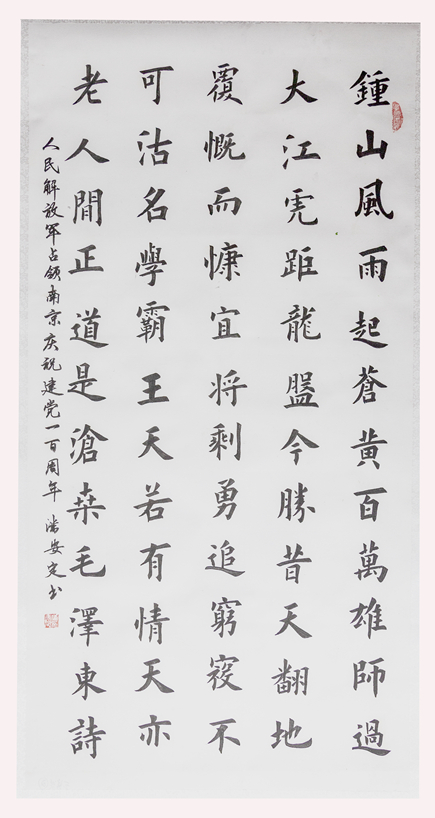 鍾山風雨起蒼黃百萬雄師過
大江虎踞龍盤今勝昔天翻地
覆慨而慷宜将剩勇追窮寇不
可沽名學霸王天若有情天亦
老人間正道是滄桑毛澤東詩
人民解放军占领南京庆祝建党一百周年 潘安定书